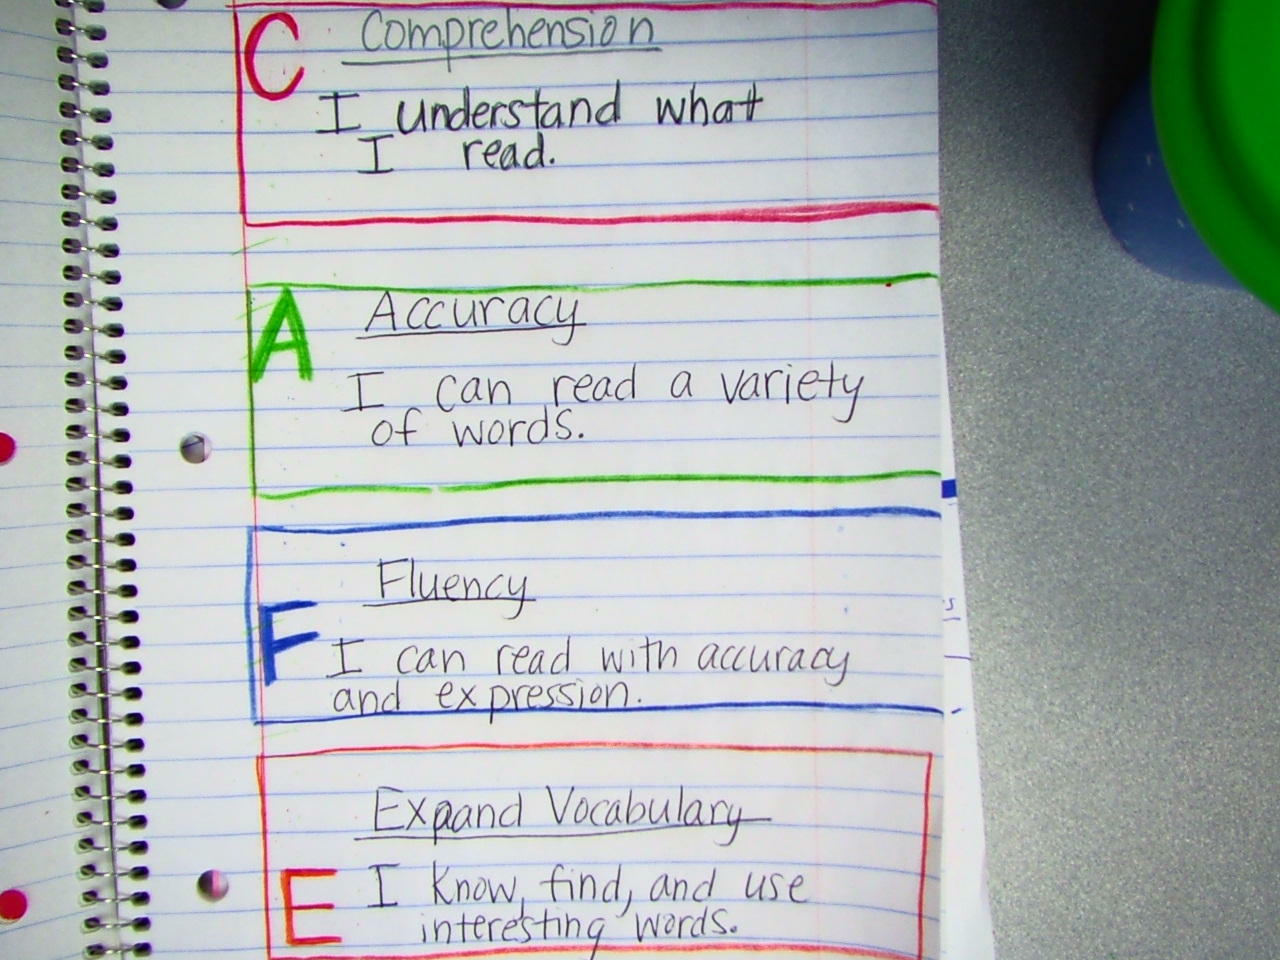 C Comprehension
I understand what
I read.
A Accuracy
I can read a variety
of words.
Fluency
F I can read with accuracy
and expression.
Expand Vocabulary
E I know, find, and use
interesting words.